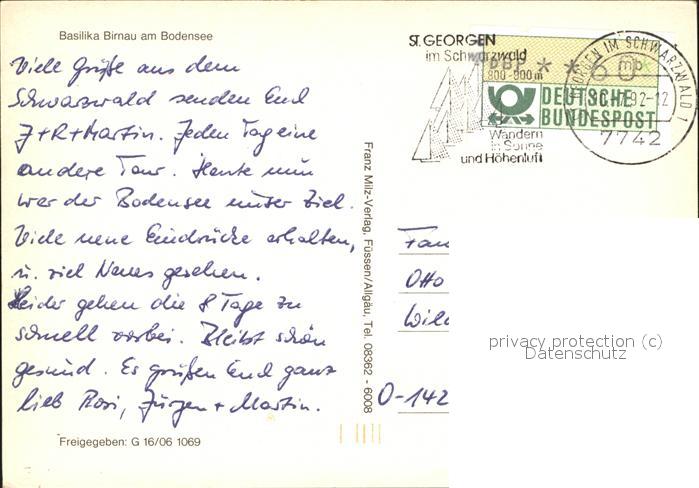 Basilika Birnau am Bodensee
Viele Grüße aus dem
Schwarzwald senden Euch
J+R+Martin. Jeden Tag eine
andere Tour. Heute nun
war der Bodensee unser Ziel.
Viele neue Eindrücke erhalten,
u. viel Neues gesehen.
Leider gehen die 8 Tage zu
schnell vorbei. Bleibt schön
gesund. Es grüßen Euch ganz
lieb Rosi, Jürgen + Martin.
Freigegeben: G 16/06 1069
Franz Milz-Verlag, Füssen/Allgäu, Tel. 08362 - 6008
ST. GEORGEN
im Schwarzwald
800-900m
Wandern
in Sonne
und Höhenluft
DBP * * 60
DEUTSCHE
BUNDESPOST
GEORGEN IM SCHWARZWALD 1
92-12
7742
Fam
Otto
O-142
privacy protection (c)
Datenschutz